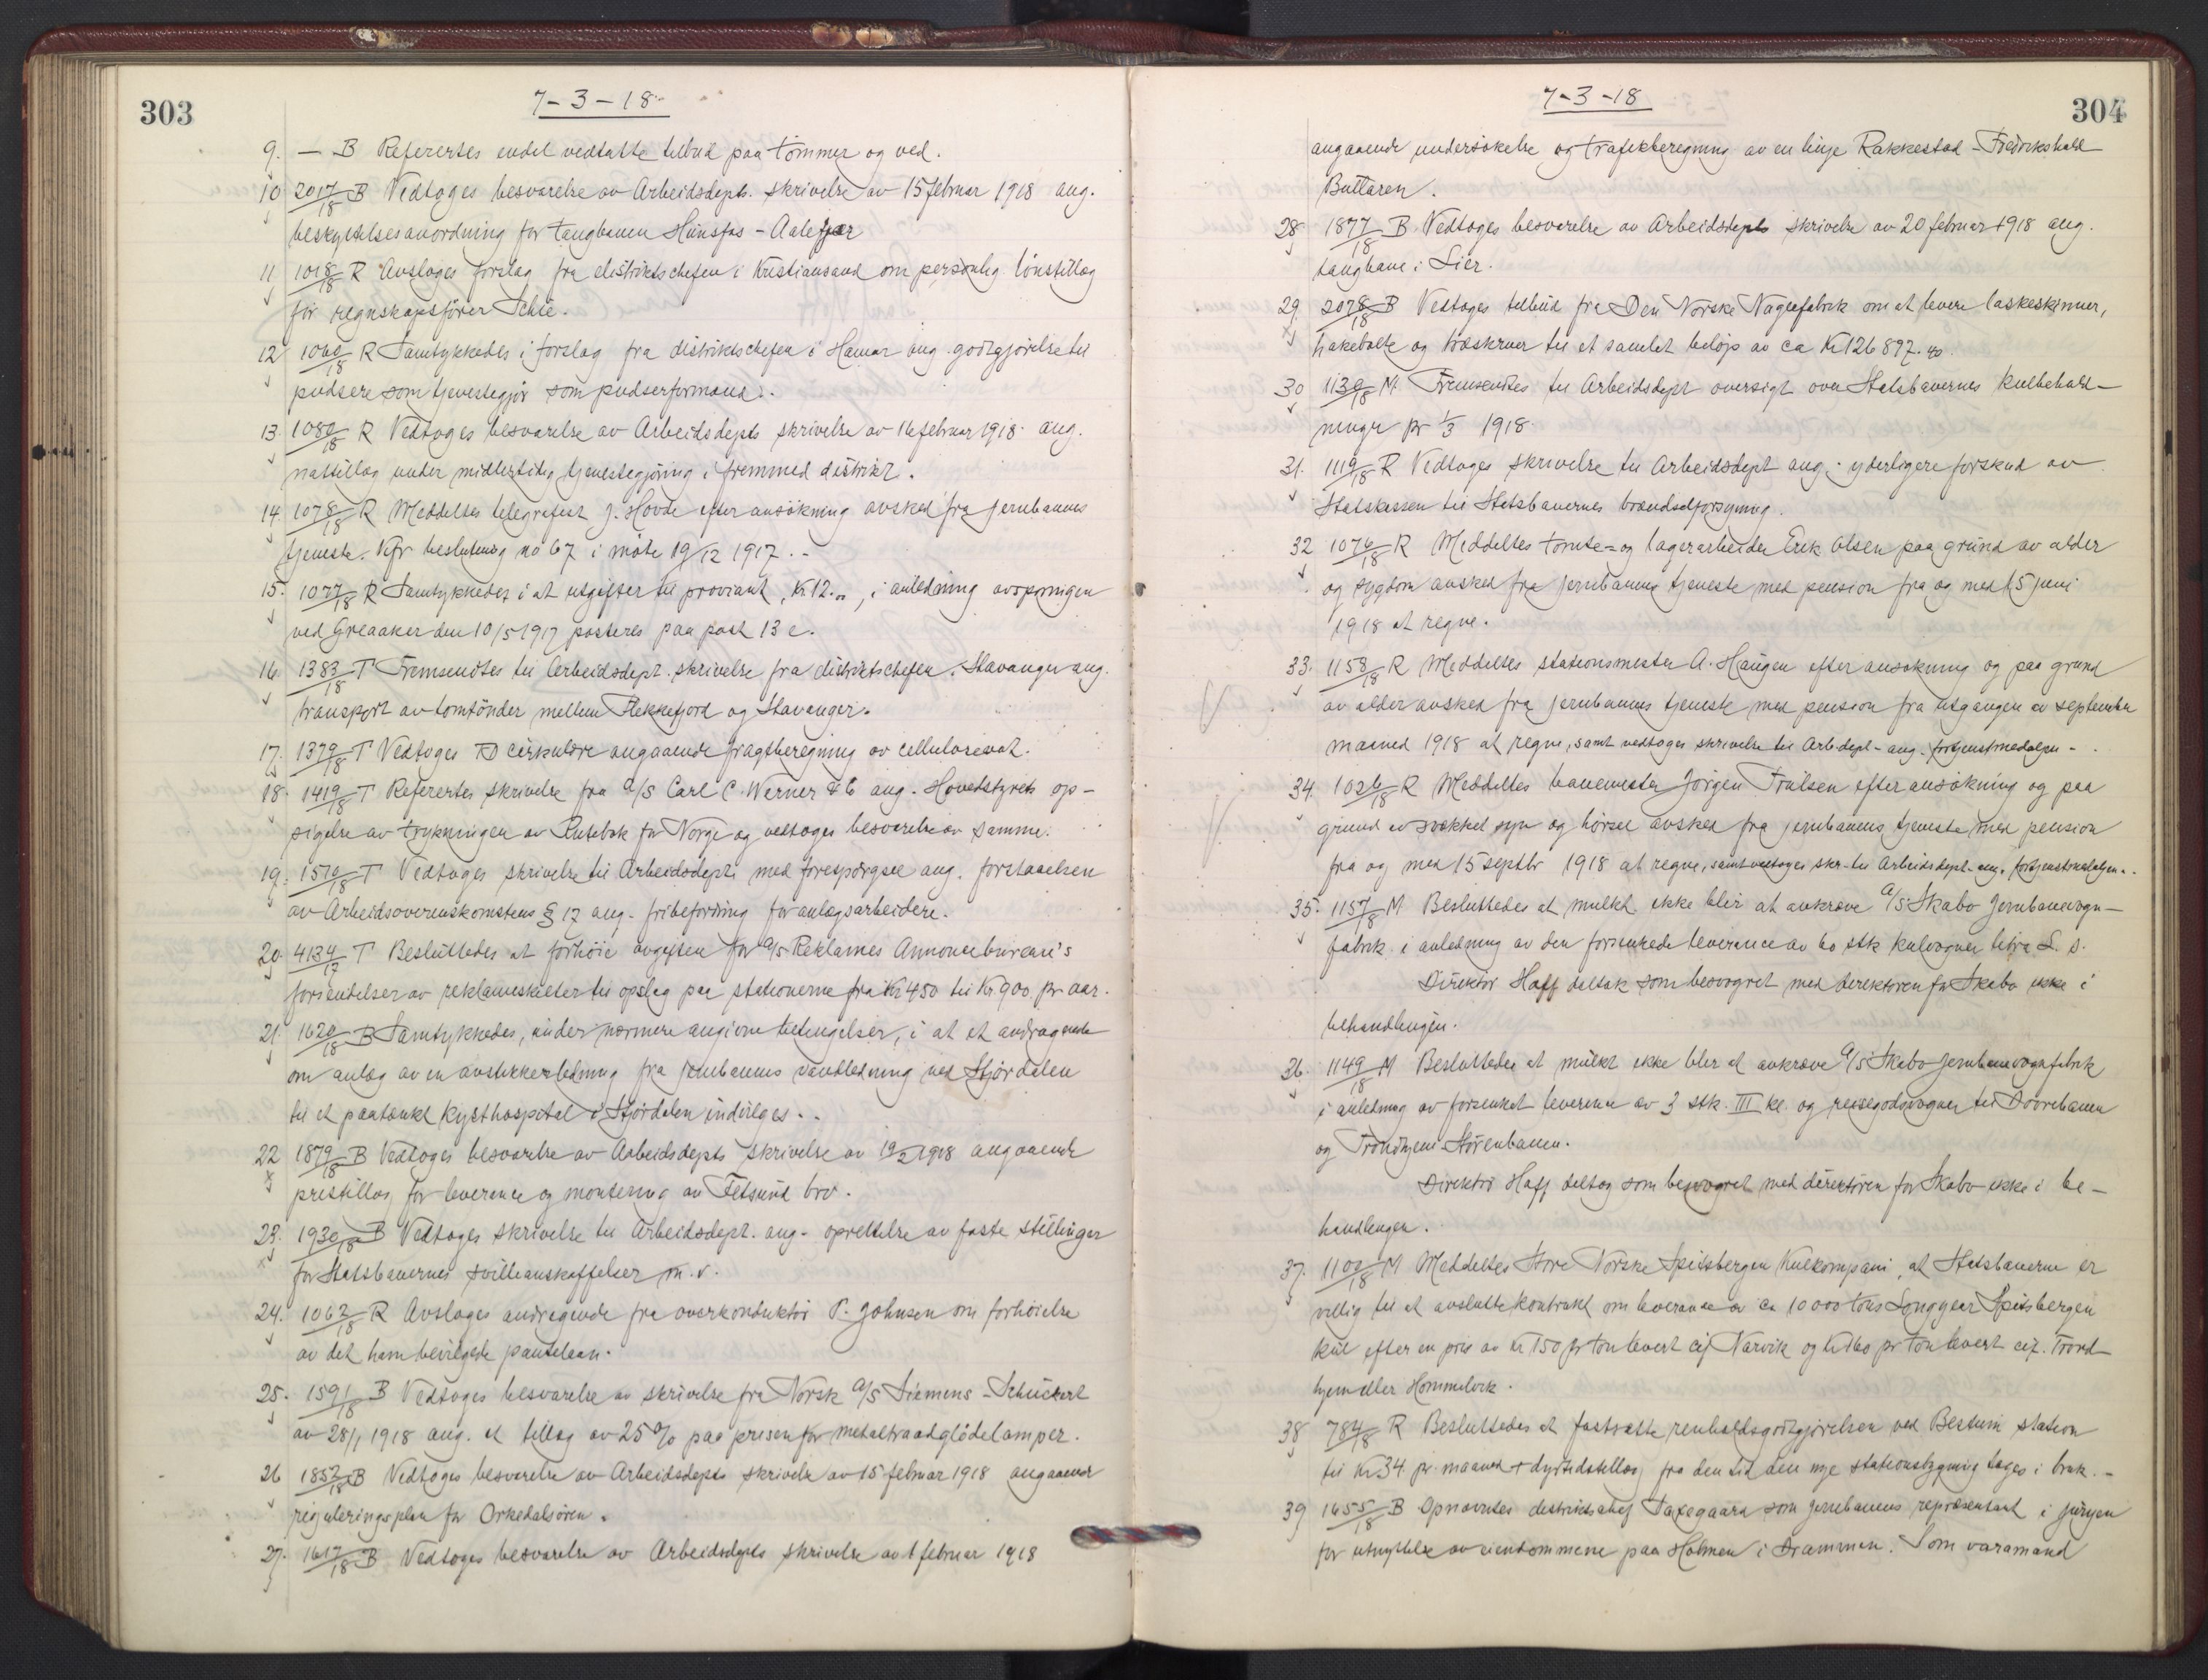 303
7-3-18
9. — B Refereres endel vedtatte tilbud paa tömmer og ved.
10 2017/18 B Vedtoges besvarelse av Arbeidsdepts. skrivelse av 15 februar 1918 ang.
beskyttelsesanordning for taugbanen Hunsfos - Aalefjær
11 1018/18 R Avsloges forslag fra distriktschefen i Kristiansand om personlig lönstillæg
for regnskapsförer Schie.
12 1060/18 R Samtykkedes i forslag fra distriktschefen i Hamar ang. godtgjörelse til
pudsere som tjenestegjör som pudserformænd.
13. 1080/18 R Vedtoges besvarelse av Arbeidsdepts skrivelse av 16 februar 1918 ang.
nattillæg under midlertidig tjenestegjöring i fremmed distrikt.
14 1078/18 R Meddeltes telegrafist J. Hovde efter ansökning avsked fra jernbanens
tjeneste. Kfr beslutning no 67 i möte 19/12 1917. -
15. 1077/18 R Samtykkedes i at utgifter til proviant, Kr. 12.00, i anledning avsporingen
ved Greaaker den 10/5 1917 posteres paa post 13 c.
16. 1383/18 T Fremsendtes til Arbeidsdept. skrivelse fra distriktschefen. Stavanger ang.
transport av tomtönder mellem Flekkefjord og Stavanger.
17. 1379/18 T Vedtoges TD cirkulære angaaende fragtberegning av cellulosevat.
18. 1419/18 T Referertes skrivelse fra A/S Carl C. Werner & C ang. Hovedstyrets op-
sigelse av trykningen av Rutebok for Norge og vedtoges besvarelse av samme.
19. 1570/18 T Vedtoges skrivelse til Arbeidsdepts med forespörgsel ang. forstaaelsen
av Arbeidsoverenskomstens § 12 ang. fribefordring for anlægsarbeidere.
20. 4134/17 T Besluttedes at forhöie avgiften for A/S Reklames Annoncebureau's
forsendelser av reklameskilter til opslag paa stationerne fra Kr 450 til Kr 900 pr. aar.
21. 1620/18 B Samtykkedes, under nærmere angivne betingelser, i at et andragende
om anlæg av en avstikkerledning fra jernbanens vandledning ved Stjördalen
til et paatænkt kysthospital i Stjördalen indvilges. .
22 1879/18 B Vedtoges besvarelse av Arbeidsdepts skrivelse av 19/2 1918 angaaende
pristillæg for leverance og montering av Fetsund bro.
23. 1930/18 B Vedtoges skrivelse til Arbeidsdept. ang. oprettelse av faste stillinger
for Statsbanernes svilleanskaffelser m. v.
24. 1062/18 R Avsloges andragende fra overkonduktör P. Johnsen om forhöielse
av det ham bevilgede pantelaan.
25. 1591/18 B Vedtoges besvarelse av skrivelse fra Norsk A/S Siemens - Schuckert
av 28/1 1918 ang. et tillæg av 25 % paa prisen for metaltraadglödelamper.
26 1852/18 B Vedtoges besvarelse av Arbeidsdepts skrivelse av 15 februar 1918 angaaende
reguleringsplan for Orkedalsören.
27. 1617/18 B Vedtoges besvarelse av Arbeidsdepts skrivelse av 1 februar 1918
304
7-3-18
angaaende undersökelse og trafikberegning av en linje Rakkestad - Fredrikshald
Bullaren.
28 1877/18 B Vedtoges besvarelse av Arbeidsdepts skrivelse av 20 februar 1918 ang.
taugbane i Lier.
29 2078/18 B Vedtoges tilbud fra Den Norske Naglefabrik om at levere laskeskinner,
hakebolte og træskruer til et samlet belöp av ca Kr 126 897.40
30 1139/18 M Fremsendtes til Arbeidsdept oversigt over Statsbanernes kulbehold-
ninger pr 1/3 1918
31. 1119/18 R Vedtoges skrivelse til Arbeidsdept ang. yderligere forskud av
Statskassen til Statsbanernes brændselforsyning.
32 1076/18 R Meddeltes tomte- og lagerarbeider Erik Olsen paa grund av alder
og sygdom avsked fra jernbanens tjeneste med pension fra og med 15 juni
1918 at regne.
33. 1158/18 R Meddeltes stationsmester A. Haugen efter ansökning og paa grund
av alder avsked fra jernbanens tjeneste med pension fra utgangen av september
maaned 1918 at regne, samt vedtoges skrivelse til Arb.dept - ang. fortjenstmedaljen -
34. 1026/18 R Meddeltes banemester Jörgen Trulsen efter ansökning og paa
grund av svækket syn og hörsel avsked fra jernbanens tjeneste med pension
fra og med 15 septbr 1918 at regne, samt vedtoges skr. til Arbeidsdept. ang. fortjenstmedaljen.
35. 1157/18 M Besluttedes at mulkt ikke blir at avkræve A/S Skabo Jernbanevogn-
fabrik i anledning av den forsinkede leverance av 60 stk kulvogner litra L. s.
Direktör Hoff deltok som besvogret med direktören for Skabo ikke i
behandlingen.
36. 1149/18 M Besluttedes at mulkt ikke blir at avkræve A/S Skabo Jernbanevognfabrik
i anledning av forsinket leverance av 3 stk. III kl. og reisegodsvogner til Dovrebanen
og Trondhjem-Störenbanen.
Direktör Hoff deltog som besvogret med direktören for Skabo ikke i be-
handlingen.
37. 1102/18 M Meddeltes Store Norske Spitsbergen Kulkompani, at Statsbanerne er
villig til at avslutte kontrakt om leverance av ca 10 000 tons Longyear Spitsbergen
kul efter en pris av Kr 150 pr ton levert cif Narvik og Kr 160 pr ton levert cif. Trond-
hjem eller Hommelvik.
38 784/18 R Besluttedes at fastsætte renholdsgodtgjörelsen ved Bestum station
til Kr 34 pr. maaned + dyrtidstillæg fra den tid den nye stationsbygning tages i bruk. -
39 1655/18 B Opnævntes distriktschef Saxegaard som jernbanens repræsentant i juryen
for utnyttelse av eiendommene paa Holmen i Drammen. Som varamand